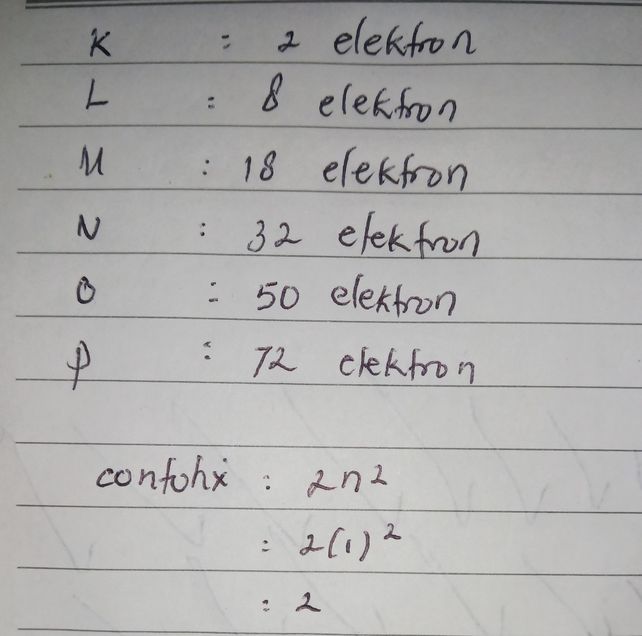 K : 2 elektron
L : 8 elektron
M : 18 elektron
N : 32 elektron
O : 50 elektron
P : 72 elektron
contohx : 2n2
: 2(1)²
: 2